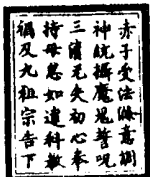 赤子受法滌意洞
神統攝魔鬼誓呪
三清无失初心奉
持毋怠如違科教
禍及九祖宗告下